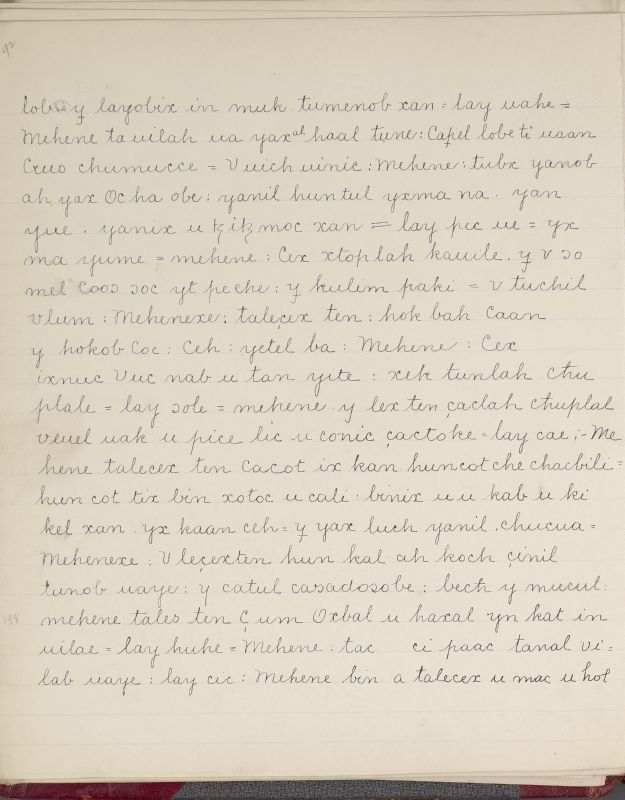 92
y layobix in muk tumenob xan = lay uahe =
Mehene ta uilah ua yax al haal tune : Capel lobe ti uaan
Cruo chumucce = V uich uinic : Mehene : tubx yanob
ah yax Ocha obe : yanil huntul yxma na . yan
yue : yanix u moc xan = lay pec ue = yx
ma yume = mehene : Cex xtoplah kauile . y v ɔo
mel Cooɔ ɔoc yt peche : y kulim paki = v tuchil
vlum : Mehenexe ; taleçex ten : hok bah Caan
y hokob Coc : Ceh : yetel ba : Mehene : Cex
ixnuc Vuc nab u tan yite : xek tunlah chu
plale = lay ɔole = mehene y lex ten çaclah chuplal
veuel uak u pice lic u conic çactoke = lay cae ;- Me
hene talecex ten Cacot ix kan huncot che chacbili =
hun cot tix bin xotoc u cali : binix u u kab u ki
kel xan . yx kaan ceh = y yax luch yanil . chucua =
Mehenexe : V leçexten hun kal ah koch çinil
tunob uaye : y catul caɔadoɔobe : bech y mucul :
198 mehene tales ten Ç um Oxbal u haxal yn kat in
uilae = lay huhe = Mehene : tac ci paac tanal vi =
lab uaye : lay cic : Mehene bin a talecex u mac u hol